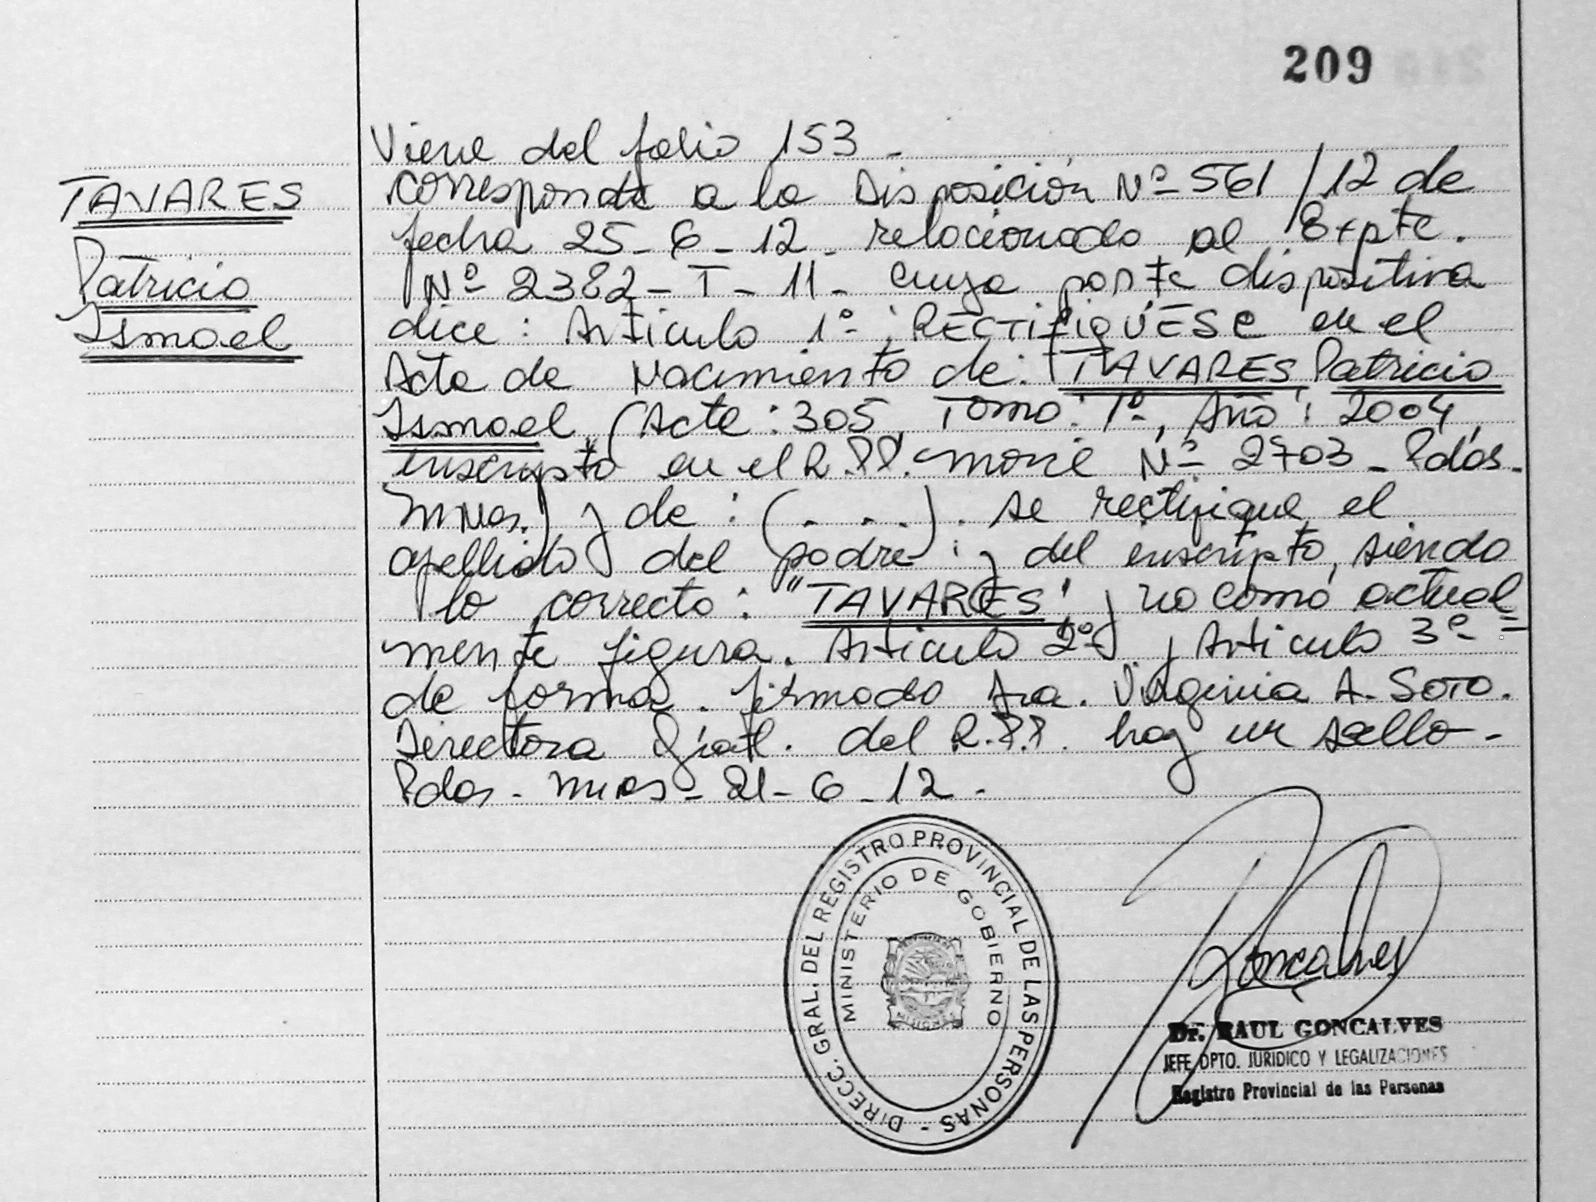 209
TAVARES
Patricio
Ismael
Viene del folio 153 -
corresponde a la Disposición Nº 561/12 de
fecha 25-6-12 - relacionado al Expte.
Nº 2382-T-11- cuya parte dispositiva
dice: Artículo 1º: RECTIFIQUESE en el
Acta de Nacimiento de: TAVARES Patricio
Ismael, (Acta: 305, Tomo: 1º, Año: 2004,
inscripto en el R.P.P. Nº 2703 - Pdas.
Mnes.) y de: (. . .). se rectifique el
apellido del padre y del inscripto, siendo
lo correcto: "TAVARES" y no como actual=
mente figura. Artículo 2º y Artículo 3º-
de forma. firmado Dra. Virginia A. Soto.
Directora Gral. del R.P.P. hay un sello-
Pdas. Mnes - 21-6-12.
DIRECC. GRAL. DEL REGISTRO PROVINCIAL DE LAS PERSONAS -
MINISTERIO DE GOBIERNO
MISIONES
Goncalves
Dr. RAUL GONCALVES
JEFE DPTO. JURIDICO Y LEGALIZACIONES
Registro Provincial de las Personas